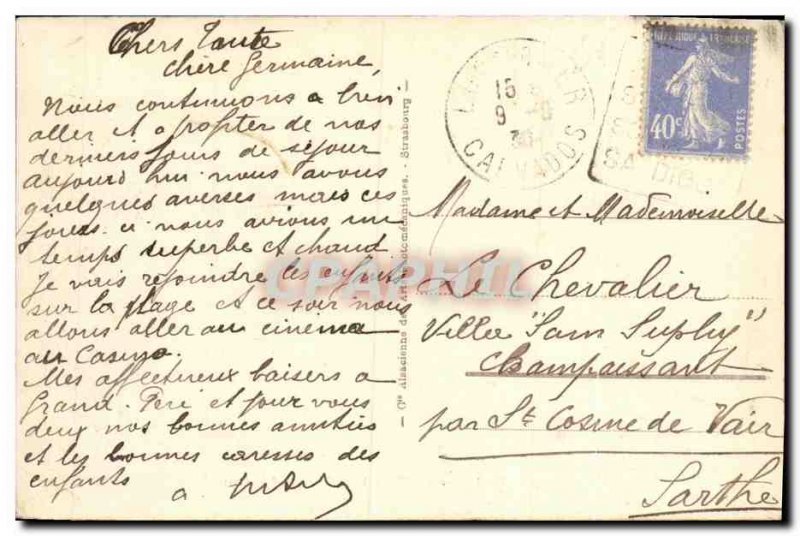 Chers Tante
chère Germaine,
Nous continuons a bien
aller et a profiter de nos
derniers jours de séjour
aujourd hui nous avons
quelques averses mais ces
jours ci nous avions un
temps superbe et chaud
Je vais rejoindre les enfants
sur la plage et ce soir nous
allons aller au cinéma
au Casino.
Mes affectueux baisers a
Grand. Père et pour vous
deux nos bonnes amitiés
et les bonnes caresses des
enfants
a
Cie Alsacienne des Arts Photomécaniques. - Strasbourg
15
9
30
CALVADOS
REPUBLIQUE FRANÇAISE
40c
POSTES
Madame et Mademoiselle
Le Chevalier
Villa "Sam Suphy"
Champaissant
par St Cosme de Vair
Sarthe
CPAPHIL